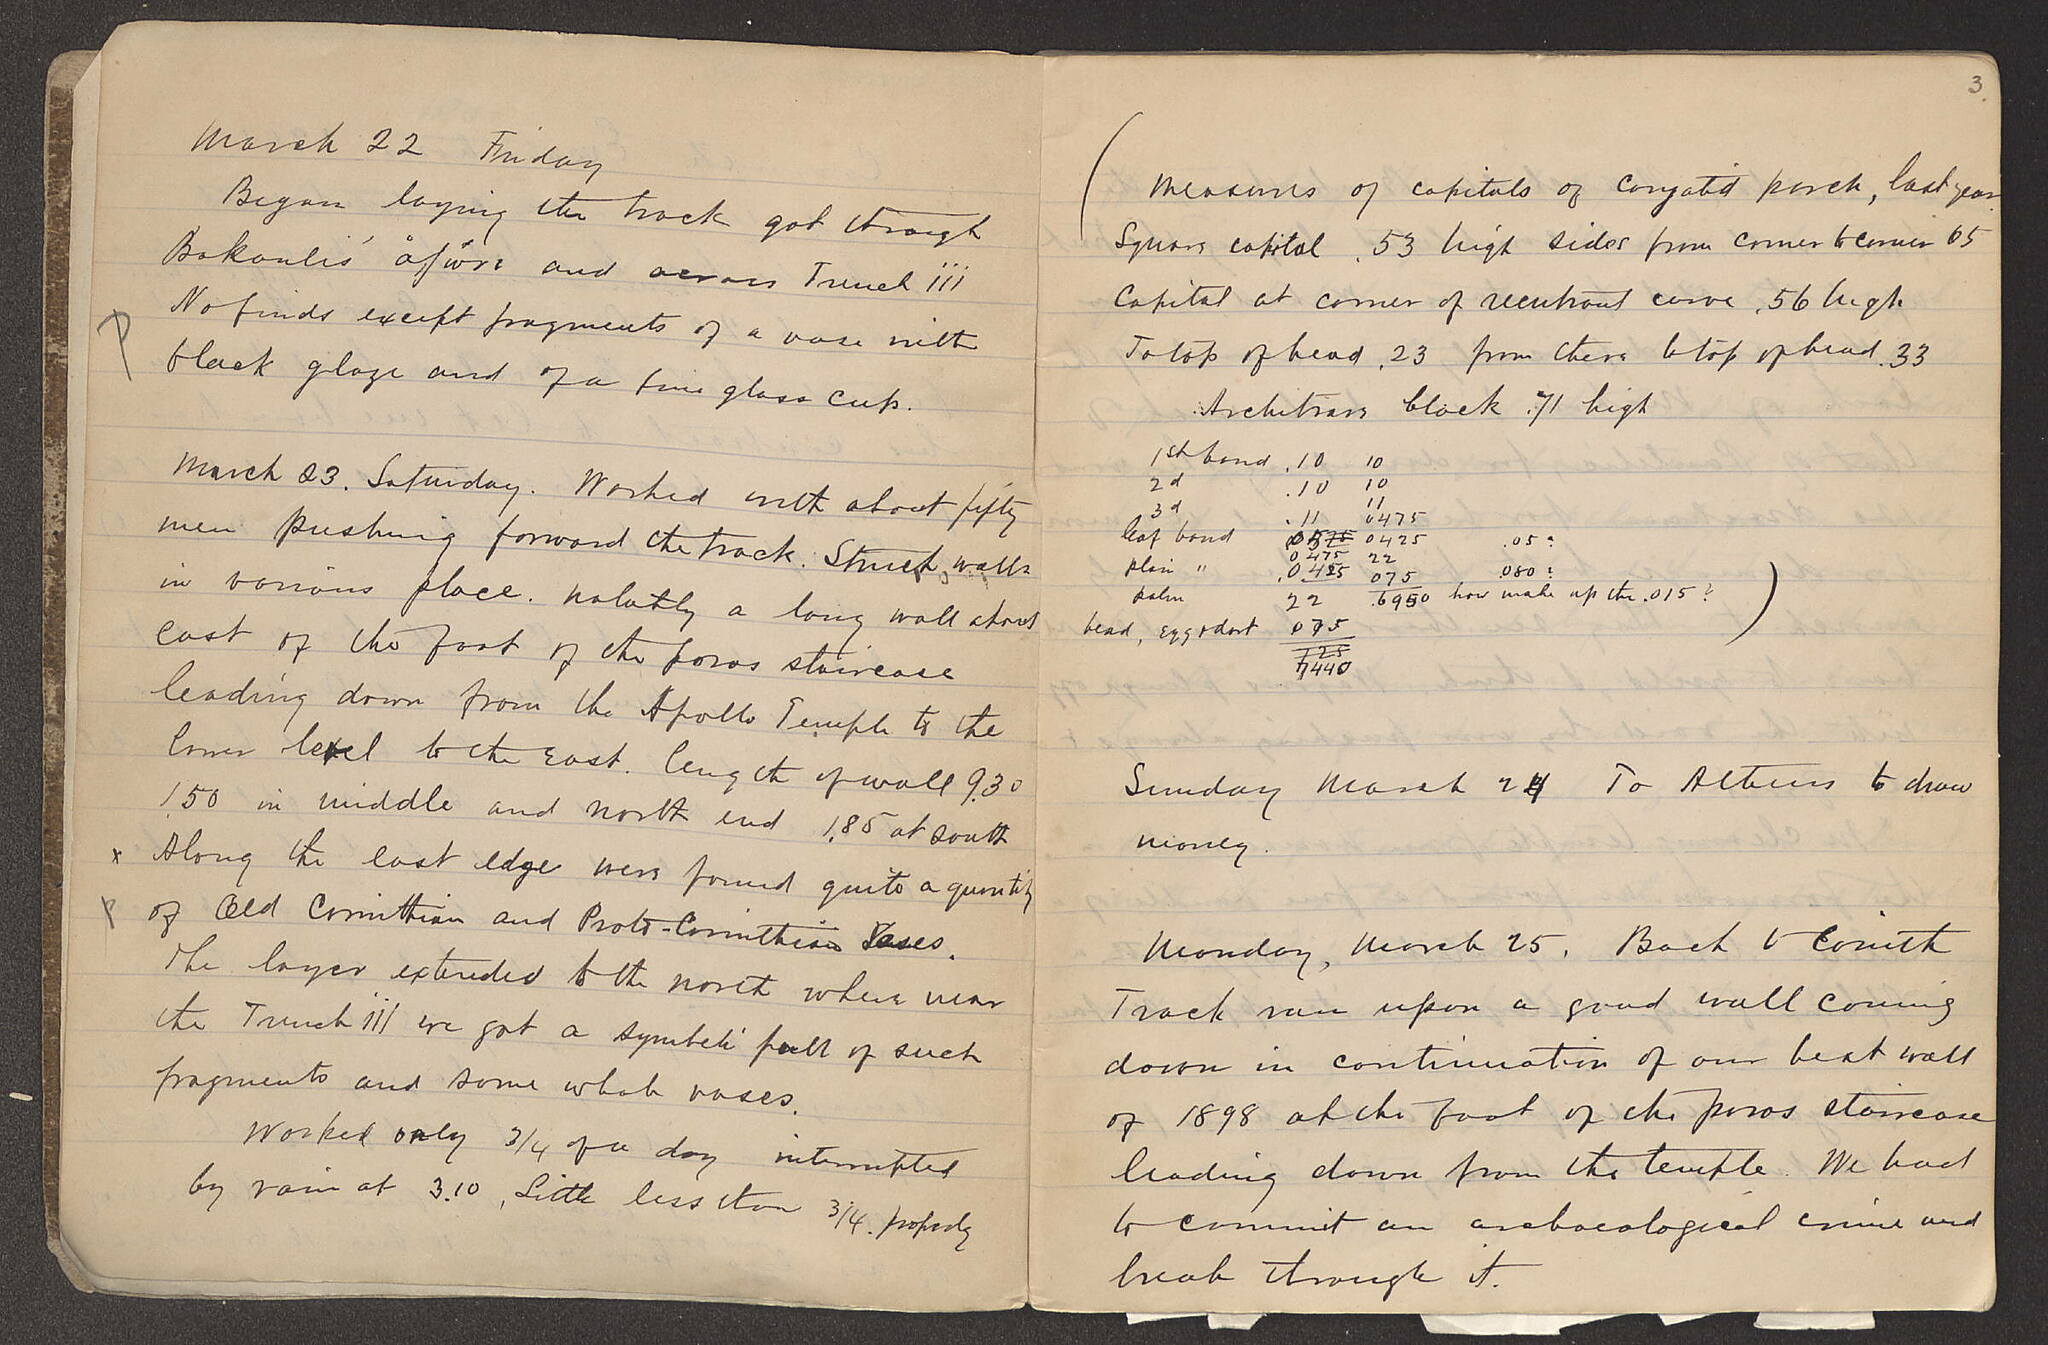 March 22 Friday
Began laying the track got through
Bakoulis' and across Trench iii
No finds except fragments of a vase with
P
black glaze and of a fine glass cup.
March 23. Saturday. Worked with about fifty
men pushing forward the track. Struck walls
in various place. notably a long wall about
east of the foot of the poros staircase
leading down from the Apollo Temple to the
lower level to the East. length of wall 9.30
1.50 in middle and north end 1.85 at south
x Along the east edge were found quite a quantity
P of Old Corinthian and Proto-Corinthian Vases.
The layer extended to the north where near
the Trench iii we got a symbeli full of such
fragments and some whole vases.
Worked only 3/4 of a day interrupted
by rain at 3.10, Little less than 3/4. properly
3
(Measures of capitals of caryatid porch, last year
Square capital .53 high sides from corner to corner 65
Capital at corner of reentrant curve .56 high
To top of head .23 from there to top of head .33
Architrave block .71 high
1st band .10 10
2d .10 10
3d .11 11
leaf band 0475 0475
plain " .0425 0425 .05?
palm 22 22
bead, egg & dart 075 075 .080?
.6950 how make up the .015?)
7440
Sunday March 24 To Athens to draw
money.
Monday, March 25. Back to Corinth
Track ran upon a good wall coming
down in continuation of our best wall
of 1898 at the foot of the poros staircase
leading down from the temple. We had
to commit an archaeological crime and
break through it.